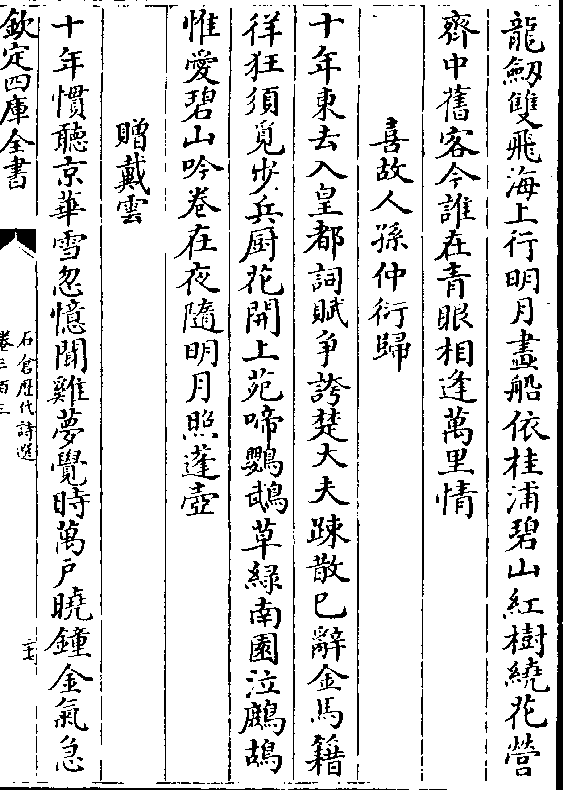 龍劔雙飛海上行明月畫船依桂浦碧山紅樹繞花營
齊中舊客今誰在青眼相逢萬里情
喜故人孫仲衍歸
十年東去入皇都詞賦爭誇楚大夫踈散已辭金馬籍
徉狂須覓步兵厨花開上苑啼鸚鵡草綠南園泣鷓鴣
惟愛碧山吟卷在夜隨明月照蓬壺
贈戴雲
十年慣聽京華雪忽憶聞雞夢覺時萬戶曉鐘金氣急
欽定四庫全書
石倉歷代詩選
卷三百三